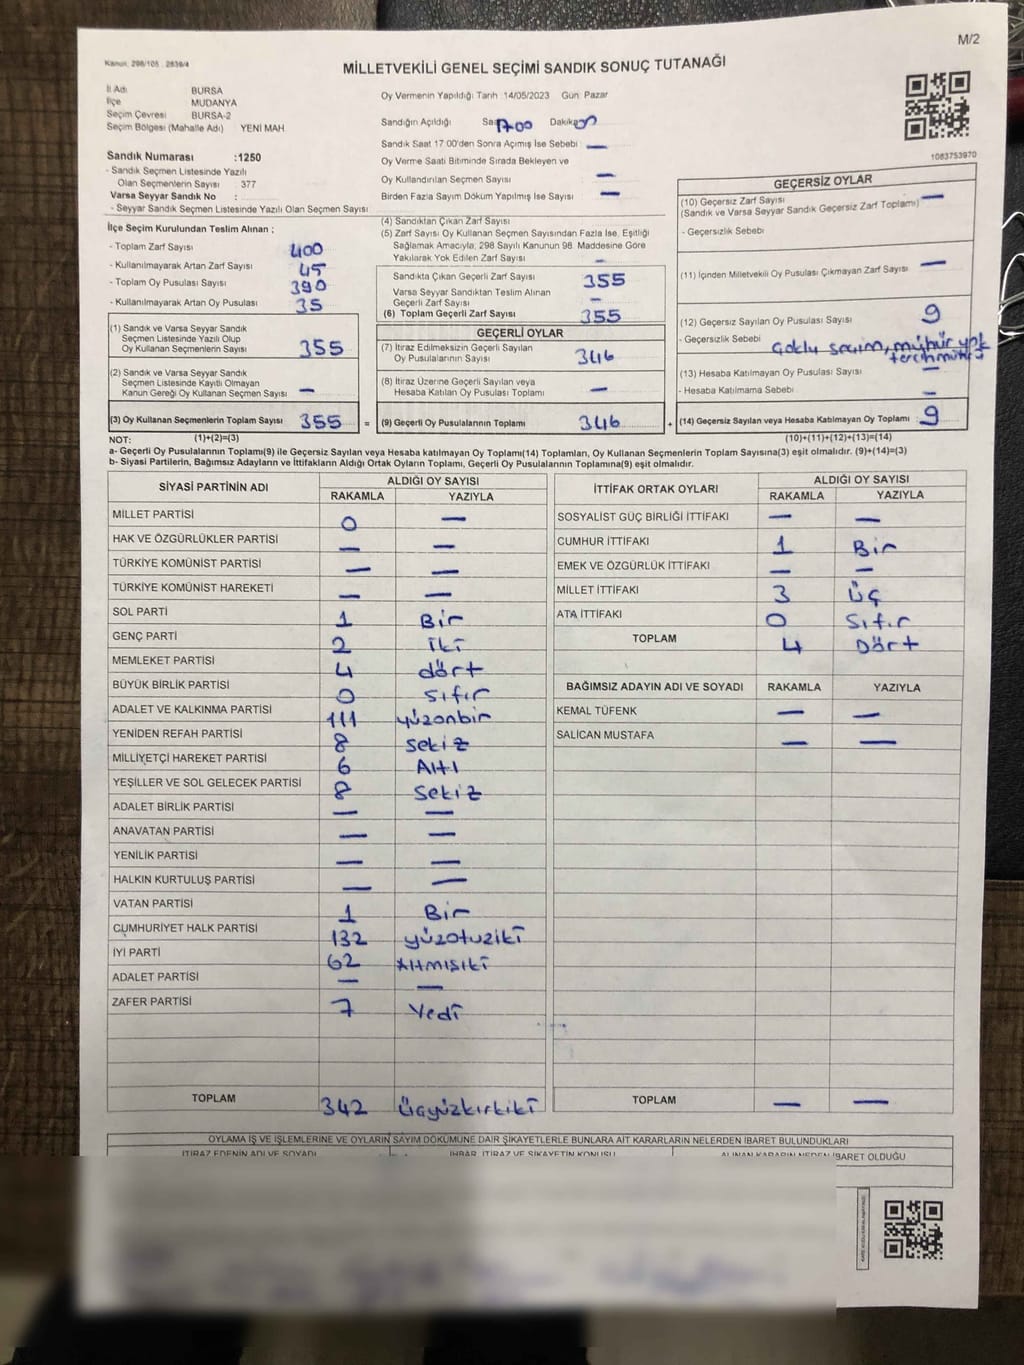 M/2
Kanun: 298/105 2839/4
MİLLETVEKİLİ GENEL SEÇİMİ SANDIK SONUÇ TUTANAĞI
İl Adı BURSA
İlçe MUDANYA
Seçim Çevresi BURSA-2
Seçim Bölgesi (Mahalle Adı) YENİ MAH
Oy Vermenin Yapıldığı Tarih 14/05/2023 Gün Pazar
Sandığın Açıldığı Saat 17:00 Dakika
Sandık Saat 17:00'den Sonra Açımış İse Sebebi —
Oy Verme Saati Bitiminde Sırada Bekleyen ve
Oy Kullandırılan Seçmen Sayısı —
Birden Fazla Sayım Döküm Yapılmış İse Sayısı —
1083753970
Sandık Numarası :1250
- Sandık Seçmen Listesinde Yazılı
Olan Seçmenlerin Sayısı : 377
Varsa Seyyar Sandık No :
- Seyyar Sandık Seçmen Listesinde Yazılı Olan Seçmen Sayısı
İlçe Seçim Kurulundan Teslim Alınan ;
- Toplam Zarf Sayısı 400
- Kullanılmayarak Artan Zarf Sayısı 45
- Toplam Oy Pusulası Sayısı 390
- Kullanılmayarak Artan Oy Pusulası 35
(1) Sandık ve Varsa Seyyar Sandık
Seçmen Listesinde Yazılı Olup
Oy Kullanan Seçmenlerin Sayısı 355
(2) Sandık ve Varsa Seyyar Sandık
Seçmen Listesinde Kayıtlı Olmayan
Kanun Gereği Oy Kullanan Seçmen Sayısı —
(3) Oy Kullanan Seçmenlerin Toplam Sayısı 355
(4) Sandıktan Çıkan Zarf Sayısı
(5) Zarf Sayısı Oy Kullanan Seçmen Sayısından Fazla İse, Eşitliği
Sağlamak Amacıyla, 298 Sayılı Kanunun 98. Maddesine Göre
Yakılarak Yok Edilen Zarf Sayısı —
Sandıkta Çıkan Geçerli Zarf Sayısı 355
Varsa Seyyar Sandıktan Teslim Alınan
Geçerli Zarf Sayısı —
(6) Toplam Geçerli Zarf Sayısı 355
GEÇERLİ OYLAR
(7) İtiraz Edilmeksizin Geçerli Sayılan
Oy Pusulalarının Sayısı 346
(8) İtiraz Üzerine Geçerli Sayılan veya
Hesaba Katılan Oy Pusulası Toplamı —
= (9) Geçerli Oy Pusulalarının Toplamı 346
GEÇERSİZ OYLAR
(10) Geçersiz Zarf Sayısı —
(Sandık ve Varsa Seyyar Sandık Geçersiz Zarf Toplamı)
- Geçersizlik Sebebi
(11) İçinden Milletvekili Oy Pusulası Çıkmayan Zarf Sayısı —
(12) Geçersiz Sayılan Oy Pusulası Sayısı 9
- Geçersizlik Sebebi Çoklu seçim, mühür yok
(13) Hesaba Katılmayan Oy Pusulası Sayısı —
- Hesaba Katılmama Sebebi —
+ (14) Geçersiz Sayılan veya Hesaba Katılmayan Oy Toplamı 9
NOT: (1)+(2)=(3) (10)+(11)+(12)+(13)=(14)
a- Geçerli Oy Pusulasının Toplamı(9) ile Geçersiz Sayılan veya Hesaba katılmayan Oy Toplamı(14) Toplamları, Oy Kullanan Seçmenlerin Toplam Sayısına(3) eşit olmalıdır. (9)+(14)=(3)
b- Siyasi Partilerin, Bağımsız Adayların ve İttifakların Aldığı Ortak Oyların Toplamı, Geçerli Oy Pusulalarının Toplamına(9) eşit olmalıdır.
SİYASİ PARTİNİN ADI ALDIĞI OY SAYISI
RAKAMLA YAZIYLA
MİLLET PARTİSİ 0 —
HAK VE ÖZGÜRLÜKLER PARTİSİ — —
TÜRKİYE KOMÜNİST PARTİSİ — —
TÜRKİYE KOMÜNİST HAREKETİ — —
SOL PARTİ 1 Bir
GENÇ PARTİ 2 iki
MEMLEKET PARTİSİ 4 dört
BÜYÜK BİRLİK PARTİSİ 0 sıfır
ADALET VE KALKINMA PARTİSİ 111 yüzonbir
YENİDEN REFAH PARTİSİ 8 sekiz
MİLLİYETÇİ HAREKET PARTİSİ 6 Altı
YEŞİLLER VE SOL GELECEK PARTİSİ 8 sekiz
ADALET BİRLİK PARTİSİ — —
ANAVATAN PARTİSİ — —
YENİLİK PARTİSİ — —
HALKIN KURTULUŞ PARTİSİ — —
VATAN PARTİSİ 1 Bir
CUMHURİYET HALK PARTİSİ 132 yüzotuziki
İYİ PARTİ 62 Altmışiki
ADALET PARTİSİ — —
ZAFER PARTİSİ 7 Yedi
TOPLAM 342 üçyüzkırkiki
İTTİFAK ORTAK OYLARI ALDIĞI OY SAYISI
RAKAMLA YAZIYLA
SOSYALİST GÜÇ BİRLİĞİ İTTİFAKI — —
CUMHUR İTTİFAKI 1 Bir
EMEK VE ÖZGÜRLÜK İTTİFAKI — —
MİLLET İTTİFAKI 3 üç
ATA İTTİFAKI 0 Sıfır
TOPLAM 4 Dört
BAĞIMSIZ ADAYIN ADI VE SOYADI RAKAMLA YAZIYLA
KEMAL TÜFENK — —
SALİCAN MUSTAFA — —
TOPLAM — —
OYLAMA İŞ VE İŞLEMLERİNE VE OYLARIN SAYIM DÖKÜMÜNE DAİR ŞİKAYETLERLE BUNLARA AİT KARARLARIN NELERDEN İBARET BULUNDUKLARI
İTİRAZ EDENİN ADI VE SOYADI İHBAR, İTİRAZ VE ŞİKAYETİN KONUSU ALINAN KARARIN NEDEN İBARET OLDUĞU